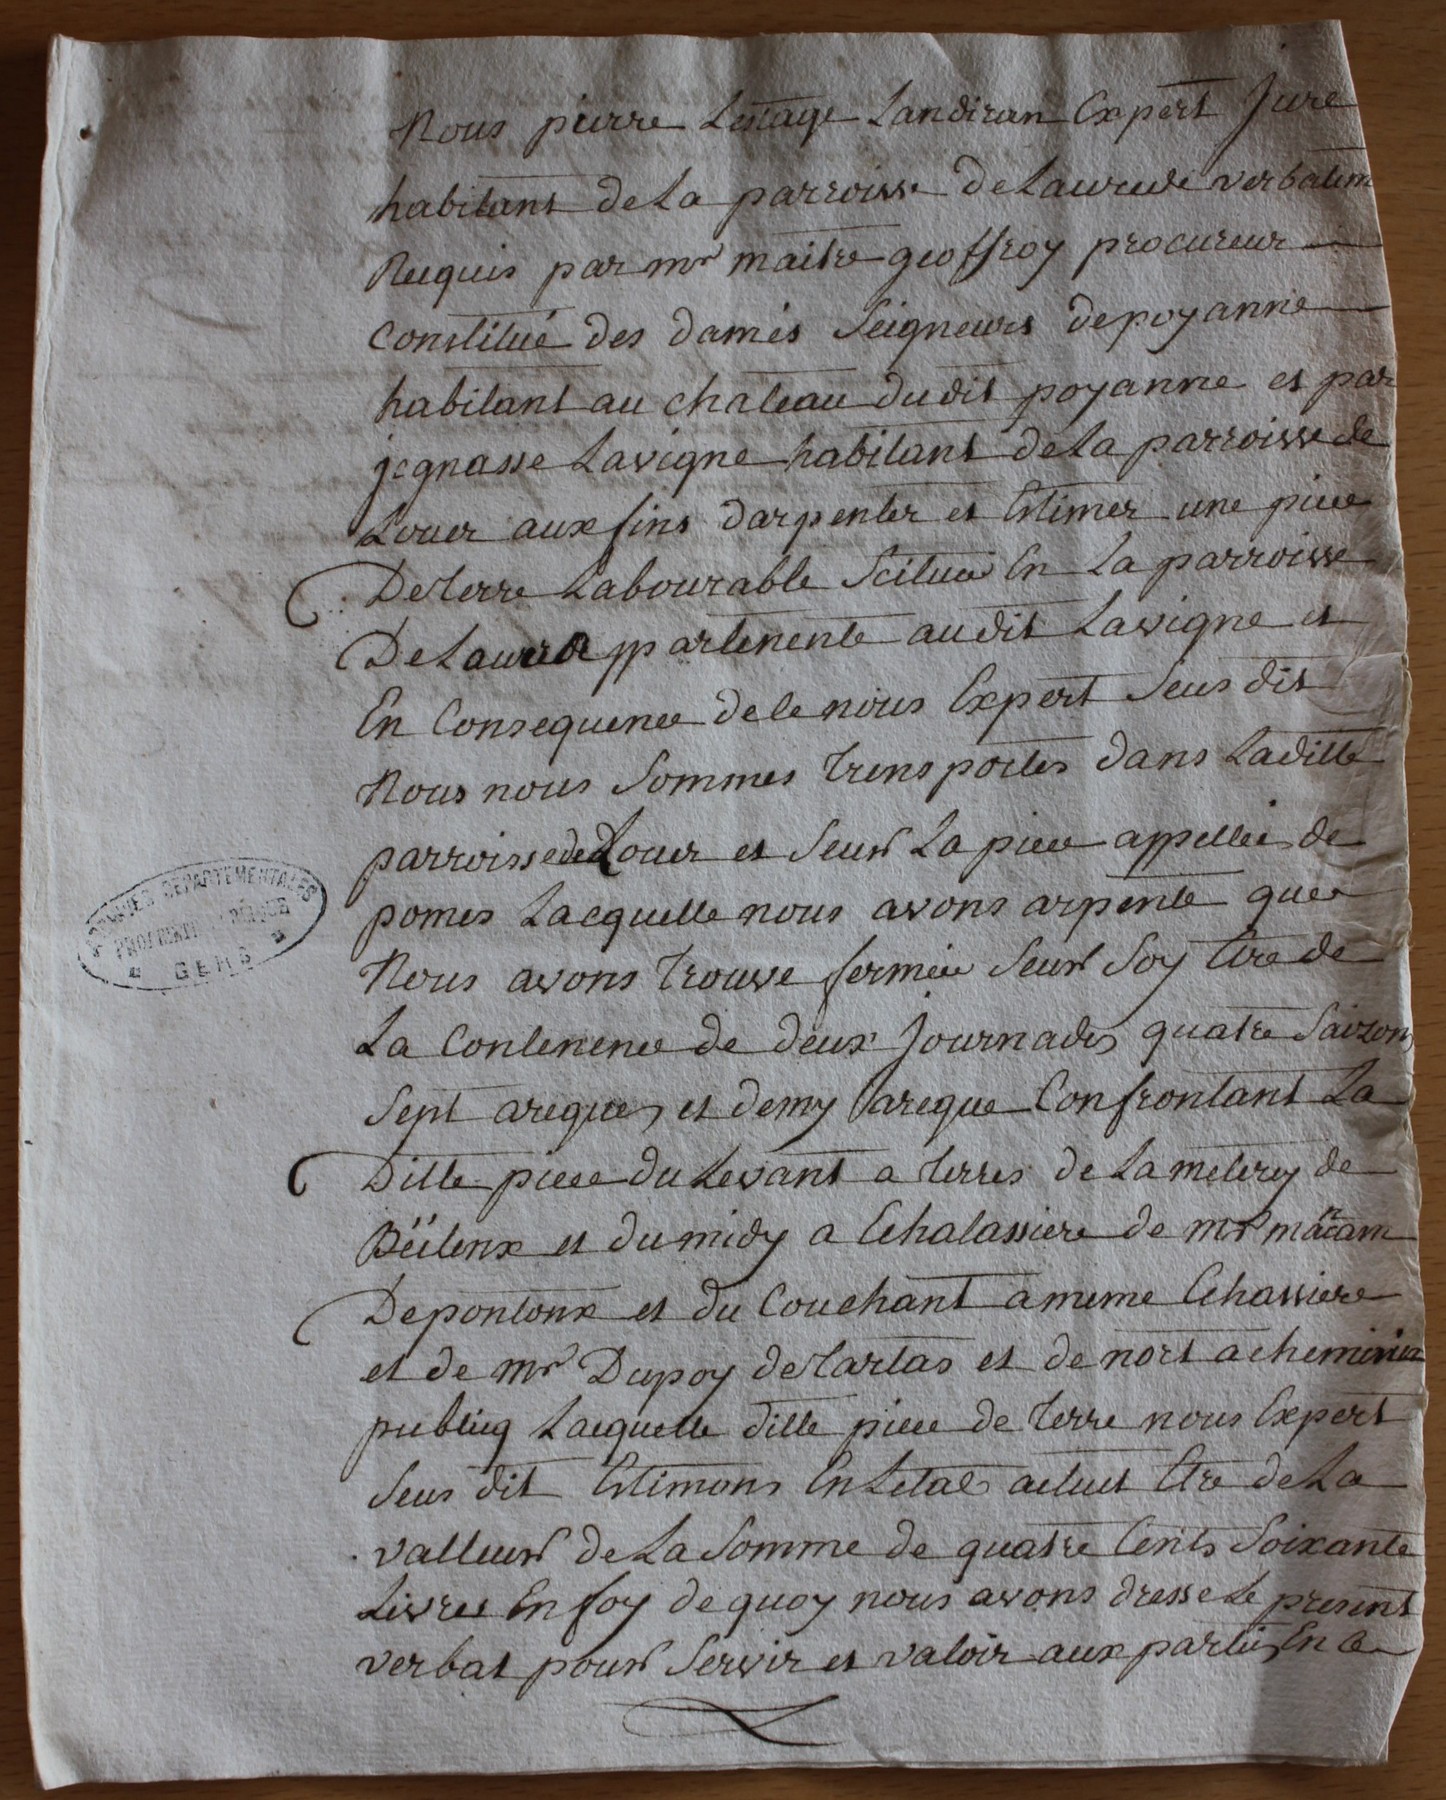 Nous pierre Lestage Landiran Expert Juré
habitant de La parroisse de Laurede verbalem
Requis par mr maitre geoffroy procureur
Constitué des damés Seigneurs de poyanne
habitant au chateau dudit poyanne et par
jegnasse Lavigne habitant de La parroisse de
Louer aux fins d'arpenter et Estimer une piece
De terre Labourable Scituée En La parroisse
De Laurede appartenente audit Lavigne et
En Consequence de ce nous Expert Seus dit
Nous nous Sommes trensportes dans Laditte
parroisse de Louer et Seur La piece appellée de
pomes Lacquelle nous avons arpenté quee
Nous avons trouvé fermée Seur Soy Etre de
La Contenence de deux Journades quatre Saizons
Sept areques et demy areque Confrontant La
Ditte piece du Levant a terres de La meterey de
Beïlenx et du midy a Echalassiere de mr
De pontonx et du Couchant a meme Echassiere
et de mr Dupoy de tartas et de nort a chemin
publiq Lacquelle ditte piece de terre nous Expert
Seus dit Estimons En Letat actuel Etre de La
valleur de La Somme de quatre Cents Soixante
Livres En foy de quoy nous avons dressé Le present
verbal pour Servir et valoir aux parties En Ce
ARCHIVES DEPARTEMENTALES
PROPRIETE PUBLIQUE
GERS